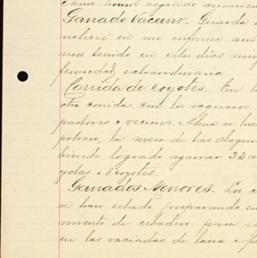 como hemos seguido
Ganado Vacuno. Guarda
noticia en mi informe ant
mos tenido en estos dias
fermedad extraordinaria
Corrida de coyotes. En l
otra corrida con los vaqueros
pastores y vecinos. Ahora se
potrero, la mesa de las
biendo logrado agarrar 32
yotas y 8 coyotes.
Ganados Menores. Los
se han estado preparando con
miento de cebadero, para
en las vaciadas de lana y